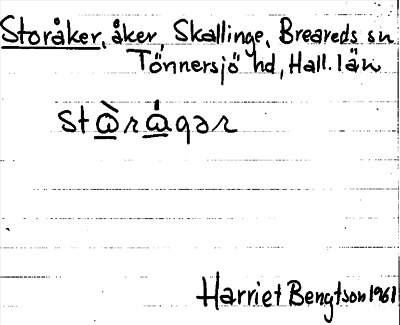 Storåker, åker, Skallinge, Breareds sn
Tönnersjö hd, Hall. län
stὼrώgər
Harriet Bengtson 1961